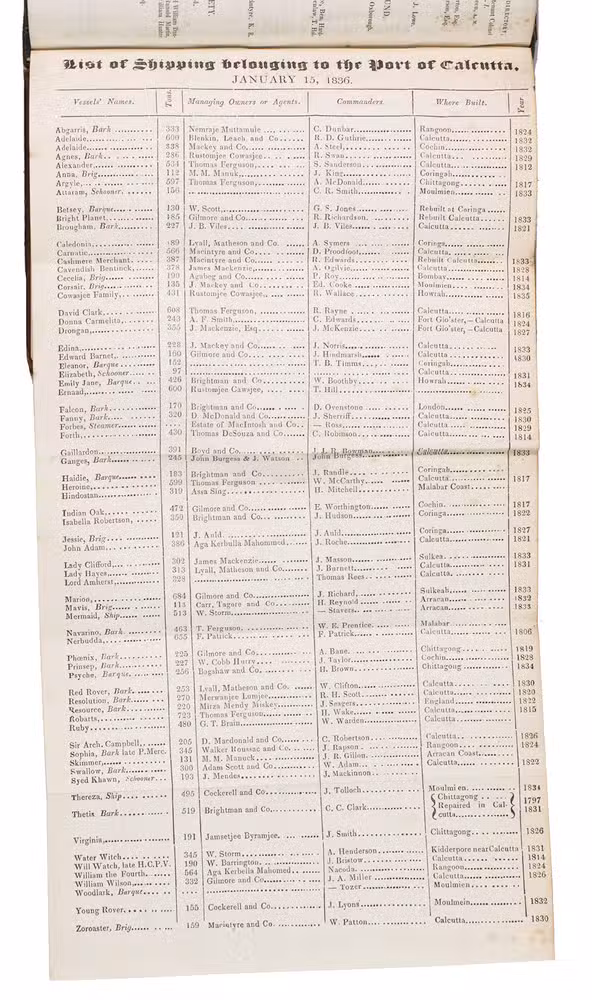 DIRECTORY.
UND.
J. Lowe,
ETY.
List of Shipping belonging to the Port of Calcutta,
JANUARY 15, 1836.
Vessels' Names. Tons. Managing Owners or Agents. Commanders. Where Built. Year
Abgarris, Bark 333 Nemraje Muttamule C. Dunbar Rangoon 1824
Adelaide 600 Blenkin, Leach and Co. R. D. Guthrie Calcutta 1832
Adelaide 338 Mackey and Co. A. Steel Cochin 1832
Agnes, Bark 286 Rustomjee Cowasjee R. Swan Calcutta 1829
Alexander 534 Thomas Ferguson, S. Sanderson Calcutta 1812
Anna, Brig 112 M. M. Manuk, J. King Coringah
Argyle, 597 Thomas Ferguson, A. McDonald Chittagong 1817
Attaram, Schooner. 156 C. R. Smith Moulmien 1833
Betsey, Barque 130 W. Scott, G. S. Jones Rebuilt at Coringa
Bright Planet 185 Gilmore and Co. R. Richardson. Rebuilt Calcutta 1833
Brougham, Bark 227 J. B. Viles J. B. Viles Calcutta 1821
Caledonia 89 Lyall, Matheson and Co. A. Symers Coringa
Carnatic 566 Macintyre and Co. D. Proudfoot Calcutta
Cashmere Merchant. 387 Macintyre and Co. R. Edwards Rebuilt Calcutta 1833
Cavendish Bentinck, 378 James Mackenzie, A. Ogilvie Calcutta 1828
Cecelia, Brig 190 Agabeg and Co. P. Roy Bombay 1814
Corsair, Brig 135 J. Mackey and Co. Ed. Cooke Moulmien 1834
Cowasjee Family 431 Rustomjee Cowasjee, R. Wallace Howrah 1835
David Clark, 608 Thomas Ferguson, R. Rayne Calcutta 1816
Donna Carmelita 243 A. F. Smith C. Edwards Fort Glo'ster, – Calcutta 1824
Drongan 355 J. Mackenzie, Esq. J. McKenzie Fort Glo'ster, – Calcutta 1827
Edina, 228 J. Mackey and Co. J. Norris Calcutta 1833
Edward Barnet, 160 Gilmore and Co. J. Hindmarsh Calcutta 1830
Eleanor, Barque 152 T. B. Timms Coringah
Elizabeth, Schooner 97 Calcutta 1831
Emily Jane, Barque 426 Brightman and Co. W. Boothby Howrah 1834
Ernaad, 600 Rustomjee Cawsjee, T. Hill
Falcon, Bark 170 Brightman and Co. D. Ovenstone London 1825
Fancy, Bark 320 D. McDonald and Co. J. Sheriff Calcutta 1830
Forbes, Steamer Estate of MacIntosh and Co. — Ross, Calcutta 1829
Forth, 430 Thomas DeSouza and Co. C. Robinson Calcutta 1814
Gaillardon 391 Boyd and Co. J. R. Bowman Calcutta 1833
Ganges, Bark 245 John Burgess & J. Watson John Burgess
Haidie, Barque 183 Brightman and Co. J. Randle Coringah
Heroine 599 Thomas Ferguson W. McCarthy Calcutta 1817
Hindostan 319 Assa Sing H. Mitchell Malabar Coast
Indian Oak 472 Gilmore and Co. E. Worthington Cochin 1817
Isabella Robertson, 350 Brightman and Co. J. Hudson Coringa 1822
Jessie, Brig 121 J. Auld J. Auld Coringa 1827
John Adam 386 Aga Kerbulla Mahommed J. Roche Calcutta 1821
Lady Clifford, 302 James Mackenzie J. Masson Sulkea 1833
Lady Hayes, 313 Lyall, Matheson and Co. J. Burnett Calcutta 1831
Lord Amherst, 328 Thomas Rees Calcutta
Marion, 684 Gilmore and Co. J. Richard, Sulkeah 1833
Mavis, Brig 113 Carr, Tagore and Co. H. Reynold Arracan 1832
Mermaid, Ship 513 W. Storm H. Wake Arracan 1833
— Stavers
Navarino, Bark 463 T. Ferguson W. E. Prentice Malabar
Nerbudda, 655 F. Patrick F. Patrick Calcutta 1806
Phœnix, Bark 225 Gilmore and Co. A. Bane Chittagong 1819
Prinsep, Bark 227 W. Cobb Hurry J. Taylor Cochin 1828
Psyche, Barque 256 Bagshaw and Co. H. Brown Chittagong 1834
Red Rover, Bark 253 Lyall, Matheson and Co. W. Clifton Calcutta 1830
Resolution, Bark 270 Merwanjee Lumjee R. H. Scott Calcutta 1820
Resource, Bark 220 Mirza Mendy Miskey J. Seagers England 1822
Robarts 723 Thomas Ferguson H. Wake Calcutta 1815
Ruby 480 G. T. Brain W. Warden Calcutta
Sir Arch. Campbell, 205 D. Macdonald and Co. C. Robertson Calcutta 1826
Sophia, Bark late P. Merc. 345 Walker Roussac and Co. J. Rapson Rangoon 1824
Skimmer, 131 M. M. Manuck J. R. Gillon Arracan Coast
Swallow, Bark 300 Adam Scott and Co. W. Adam Calcutta 1822
Syed Khawn, Schooner 193 J. Mendes J. Mackinnon
Thereza, Ship 495 Cockerell and Co. J. Tolloch Moulmien 1834
Thetis Bark 519 Brightman and Co. C. C. Clark Chittagong 1797
Repaired in Calcutta 1831
Virginia, 191 Jamsetjee Byramjee J. Smith Chittagong 1826
Water Witch 345 W. Storm A. Henderson Kidderpore near Calcutta 1831
Will Watch, late H.C.P.V. 190 W. Barrington J. Bristow Calcutta 1814
William the Fourth 564 Aga Kerbella Mahomed Nacoda Rangoon 1824
William Wilson, 332 Gilmore and Co. J. A. Miller Calcutta 1826
Woodlark, Barque — Tozer Moulmien
Young Rover 155 Cockerell and Co. J. Lyons Moulmein 1832
Zoroaster, Brig 159 Macintyre and Co. W. Patton Calcutta 1830